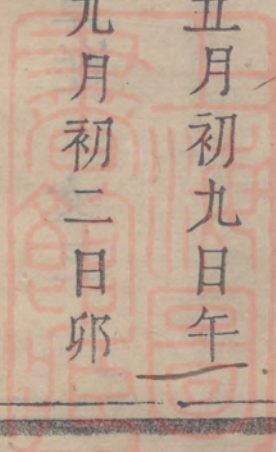 五月初九日午
九月初二日卯